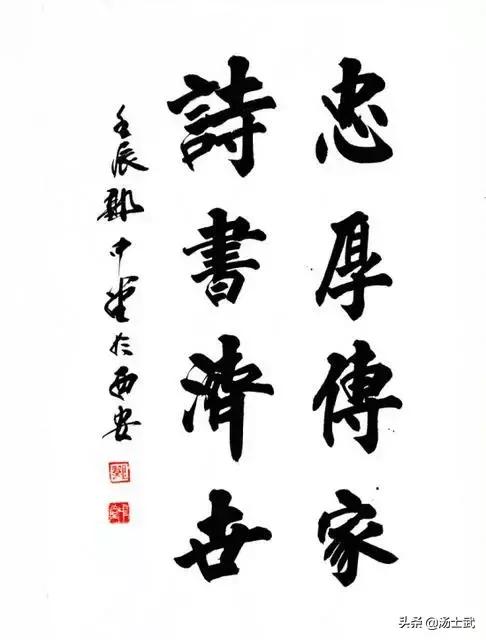 忠厚傳家
詩書濟世
壬辰中於西安
头条 @汤士武